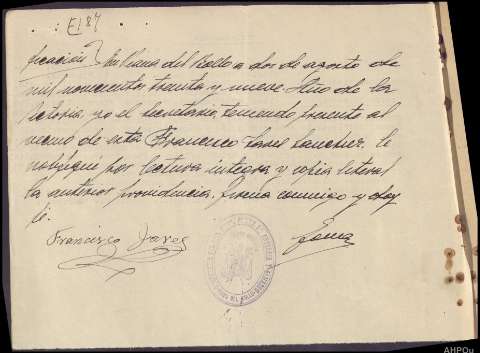 E187
ficación} En Viana del Bollo a dos de agosto de
mil novecientos treinta y nueve. Año de la
Victoria, yo el Secretario, teniendo presente al
vecino de esta Francisco Jares Sanchez, le
notifiqué por lectura integra y copia literal
la anterior providencia, firma conmigo y doy
fé.
Francisco Jares
AHPOu